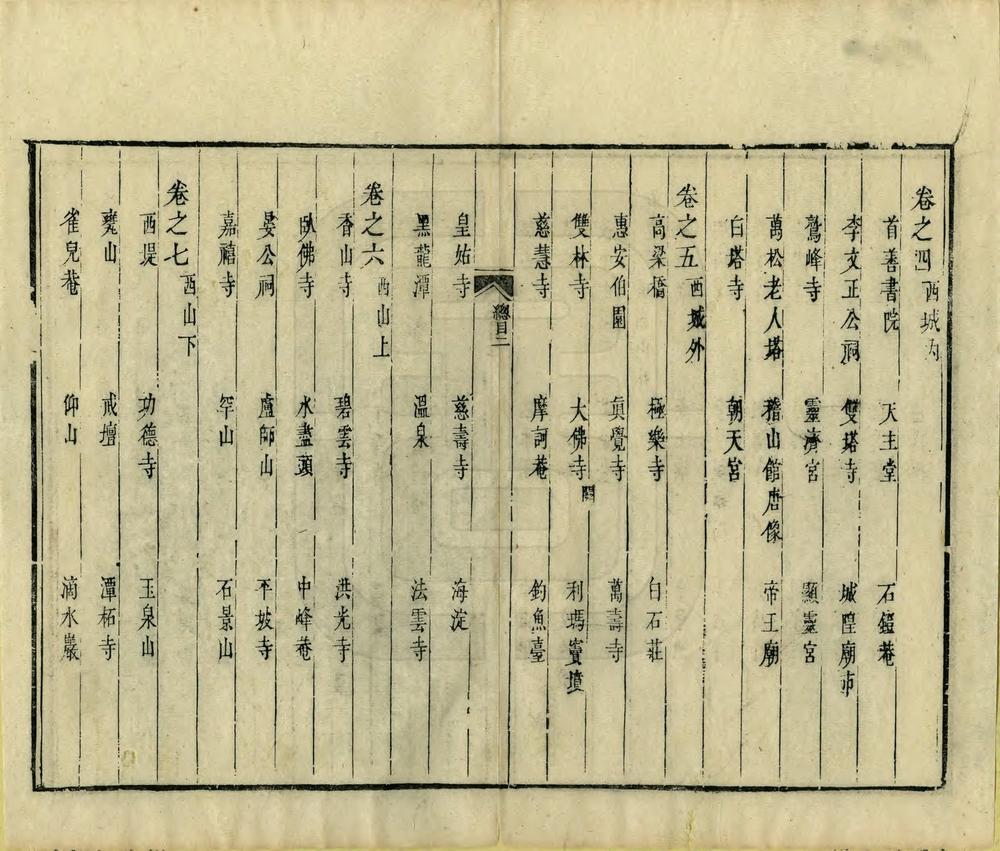 卷之四 西城內
首善書院 天主堂 石鐙菴
李文正公祠 雙塔寺 城隍廟市
鷲峰寺 靈濟宮 顯靈宮
萬松老人塔 稽山館唐像 帝王廟
白塔寺 朝天宮
卷之五 西城外
高梁橋 極樂寺 白石莊
惠安伯園 真覺寺 萬壽寺
雙林寺 大佛寺 利瑪竇墳
慈慧寺 摩訶菴 釣魚臺
總目二
皇姑寺 慈壽寺 海淀
黑龍潭 溫泉 法雲寺
卷之六 西山上
香山寺 碧雲寺 洪光寺
臥佛寺 水盡頭 中峰菴
晏公祠 盧師山 平坡寺
嘉禧寺 罕山 石景山
卷之七 西山下
西堤 功德寺 玉泉山
甕山 戒壇 潭柘寺
雀兒菴 仰山 滴水巖